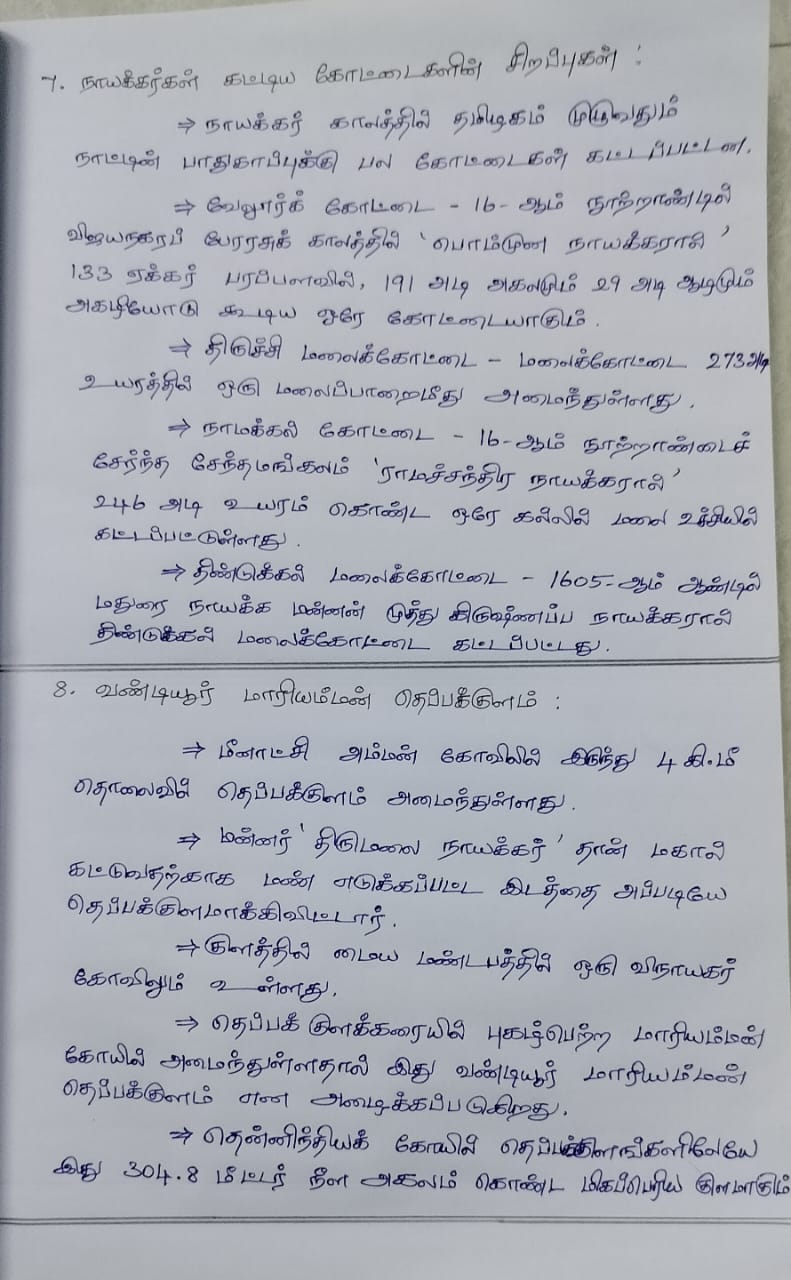 7. நாயக்கர்கள் கட்டிய கோட்டைகளின் சிறப்புகள் :
⇒ நாயக்கர் காலத்தில் தமிழகம் முழுவதும்
நாட்டின் பாதுகாப்புக்கு பல கோட்டைகள் கட்டப்பட்டன.
⇒ வேலூர்க் கோட்டை - 16-ஆம் நூற்றாண்டில்
விஜயநகரப் பேரரசுக் காலத்தில் 'பொம்முன நாயக்கரால்'
133 ஏக்கர் பரப்பளவில், 191 அடி அகலமும் 29 அடி ஆழமும்
அகழியோடு கூடிய ஒரே கோட்டையாகும்.
⇒ திருச்சி மலைக்கோட்டை - மலைக்கோட்டை 273 அடி
உயரத்தில் ஒரு மலைப்பாறைமீது அமைந்துள்ளது.
⇒ நாமக்கல் கோட்டை - 16-ஆம் நூற்றாண்டைச்
சேர்ந்த சேந்தமங்கலம் 'ராமச்சந்திர நாயக்கரால்'
246 அடி உயரம் கொண்ட ஒரே கல்லில் மலை உச்சியில்
கட்டப்பட்டுள்ளது.
⇒ திண்டுக்கல் மலைக்கோட்டை - 1605-ஆம் ஆண்டில்
மதுரை நாயக்க மன்னன் முத்து கிருஷ்ணப்ப நாயக்கரால்
திண்டுக்கல் மலைக்கோட்டை கட்டப்பட்டது.
8. வண்டியூர் மாரியம்மன் தெப்பக்குளம் :
⇒ மீனாட்சி அம்மன் கோவிலில் இருந்து 4 கி.மீ
தொலைவில் தெப்பக்குளம் அமைந்துள்ளது.
⇒ மன்னர் 'திருமலை நாயக்கர்' தான் மகால்
கட்டுவதற்காக மண் எடுக்கப்பட்ட இடத்தை அப்படியே
தெப்பக்குளமாக்கிவிட்டார்.
⇒ குளத்தில் மைய மண்டபத்தில் ஒரு விநாயகர்
கோவிலும் உள்ளது.
⇒ தெப்பக் குளக்கரையில் புகழ்பெற்ற மாரியம்மன்
கோயில் அமைந்துள்ளதால் இது வண்டியூர் மாரியம்மன்
தெப்பக்குளம் என அழைக்கப்படுகிறது.
⇒ தென்னிந்தியக் கோயில் தெப்பக்குளங்களிலேயே
இது 304.8 மீட்டர் நீள அகலம் கொண்ட மிகப்பெரிய குளமாகும்